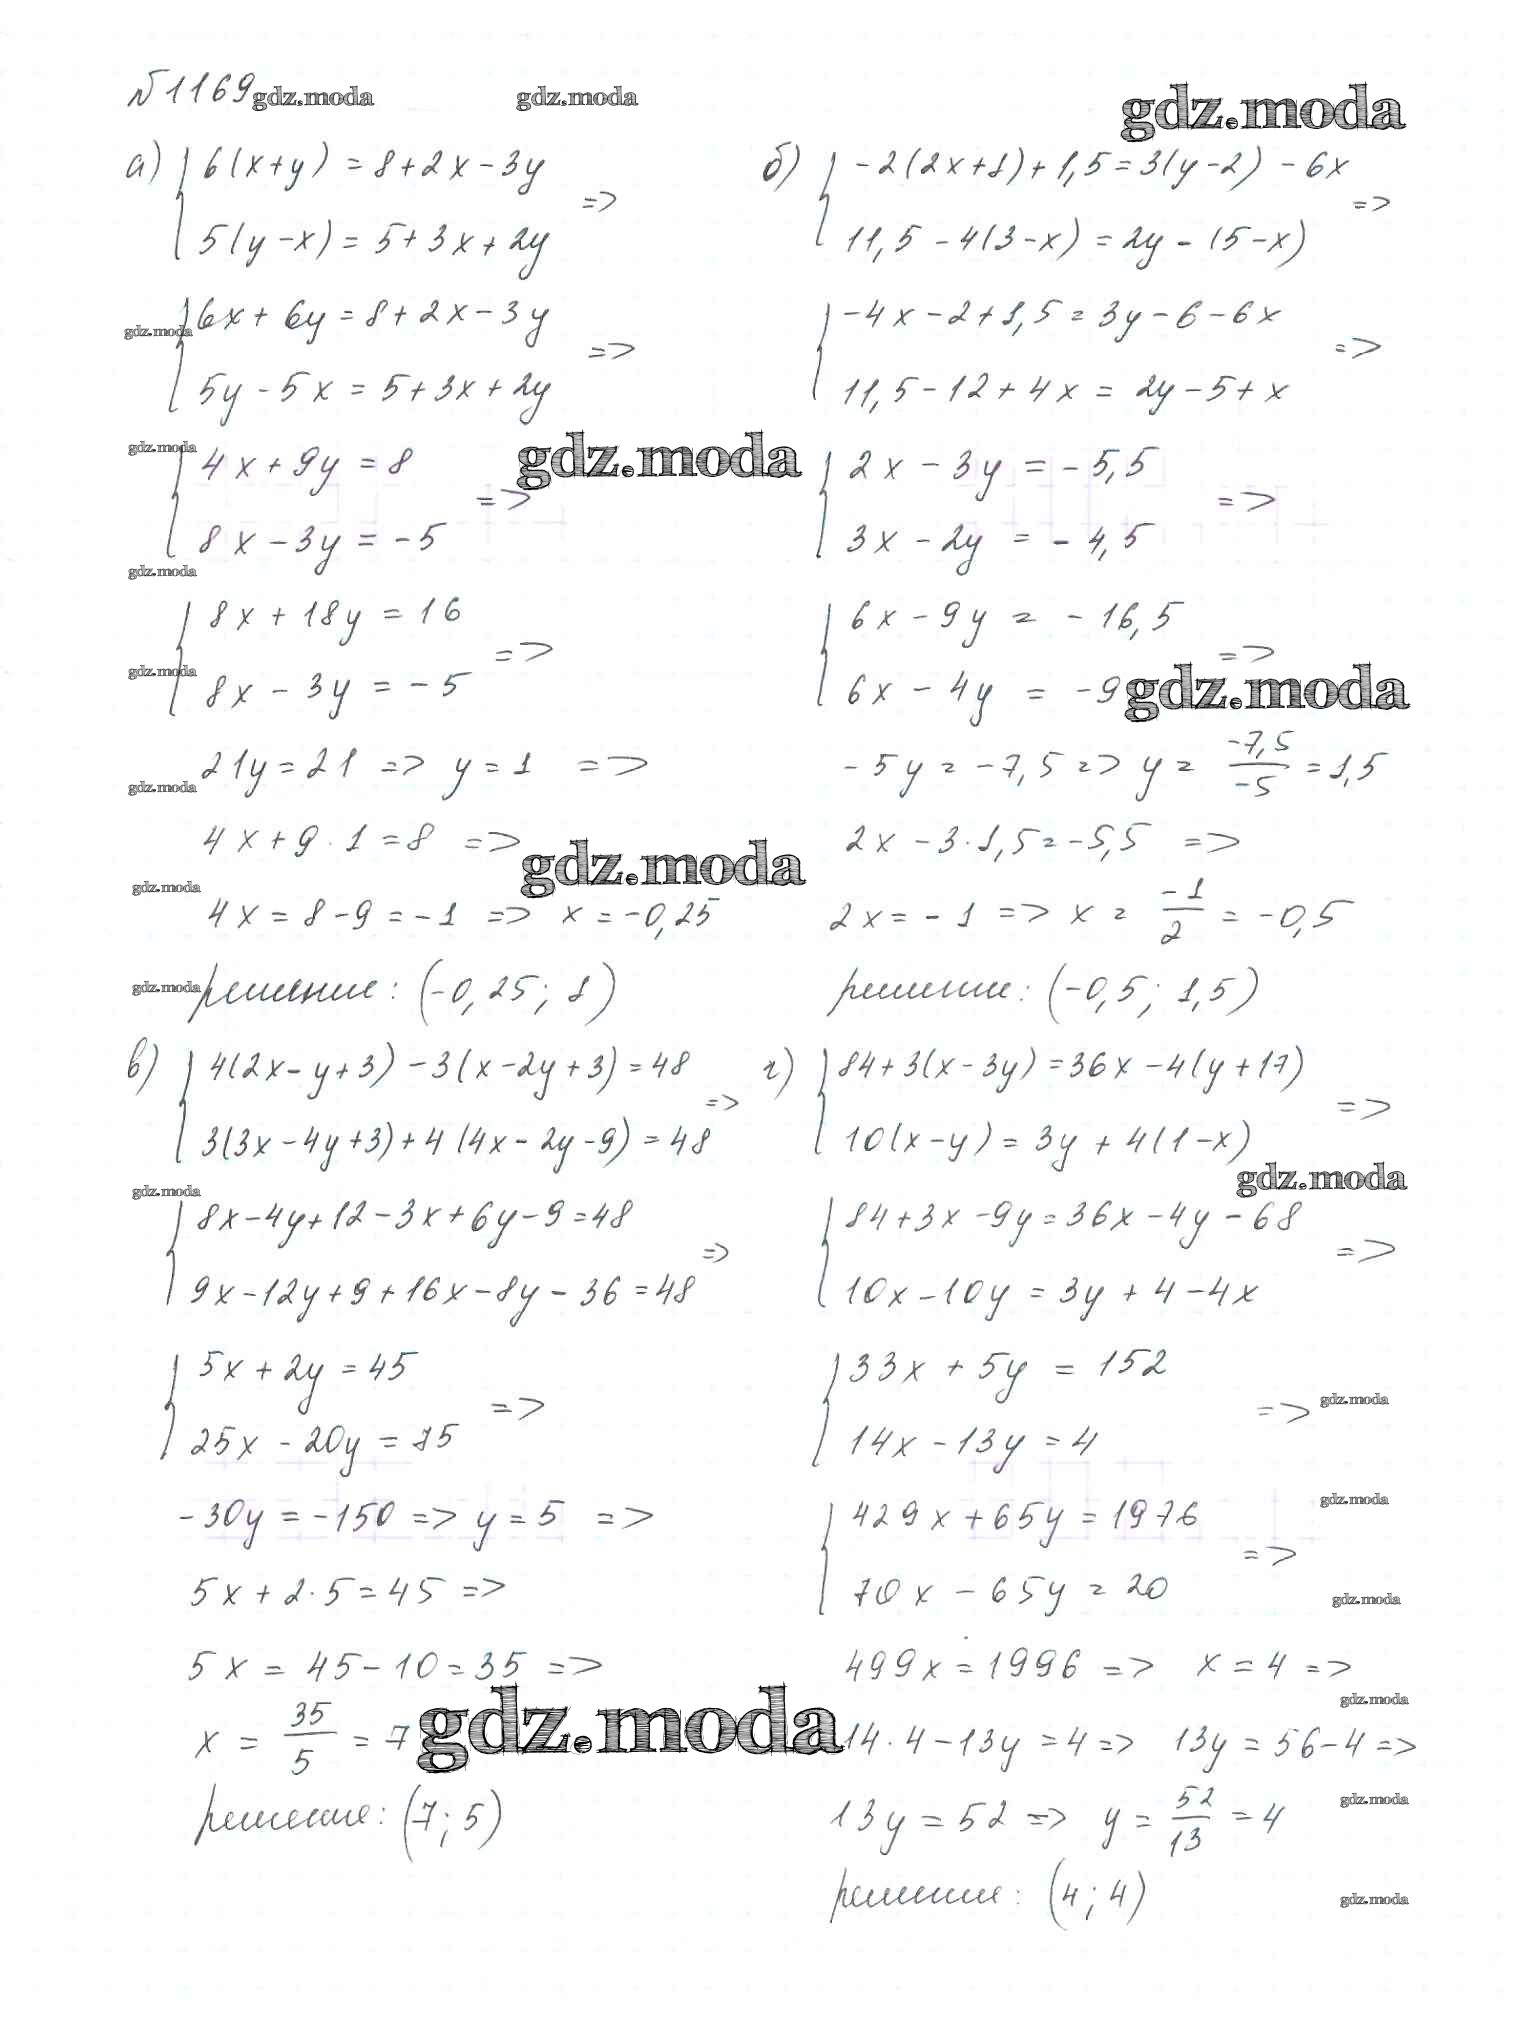 №1169 gdz.moda gdz.moda gdz.moda
а) { 6(x+y) = 8+2x-3y
5(y-x) = 5+3x+2y =>
gdz.moda
{ 6x+6y = 8+2x-3y
5y-5x = 5+3x+2y =>
gdz.moda
{ 4x+9y = 8
8x-3y = -5 =>
gdz.moda
gdz.moda
{ 8x+18y = 16
8x-3y = -5 =>
gdz.moda
21y = 21 => y = 1 =>
gdz.moda
4x+9·1 = 8 =>
gdz.moda
gdz.moda
4x = 8-9 = -1 => x = -0,25
gdz.moda
решение: (-0,25; 1)
б) { -2(2x+1)+1,5 = 3(y-2)-6x
11,5-4(3-x) = 2y-(5-x) =>
{ -4x-2+1,5 = 3y-6-6x
11,5-12+4x = 2y-5+x =>
{ 2x-3y = -5,5
3x-2y = -4,5 =>
{ 6x-9y = -16,5
6x-4y = -9 =>
gdz.moda
-5y = -7,5 => y = -7,5/-5 = 1,5
2x-3·1,5 = -5,5 =>
2x = -1 => x = -1/2 = -0,5
решение: (-0,5; 1,5)
в) { 4(2x-y+3)-3(x-2y+3) = 48
3(3x-4y+3)+4(4x-2y-9) = 48 =>
gdz.moda
{ 8x-4y+12-3x+6y-9 = 48
9x-12y+9+16x-8y-36 = 48 =>
{ 5x+2y = 45
25x-20y = 75 =>
-30y = -150 => y = 5 =>
5x+2·5 = 45 =>
5x = 45-10 = 35 =>
x = 35/5 = 7
gdz.moda
решение: (7; 5)
г) { 84+3(x-3y) = 36x-4(y+17)
10(x-y) = 3y+4(1-x) =>
gdz.moda
{ 84+3x-9y = 36x-4y-68
10x-10y = 3y+4-4x =>
{ 33x+5y = 152
14x-13y = 4 =>
gdz.moda
gdz.moda
{ 429x+65y = 1976
70x-65y = 20 =>
gdz.moda
499x = 1996 => x = 4 =>
gdz.moda
14·4-13y = 4 => 13y = 56-4 =>
gdz.moda
13y = 52 => y = 52/13 = 4
решение: (4; 4)
gdz.moda